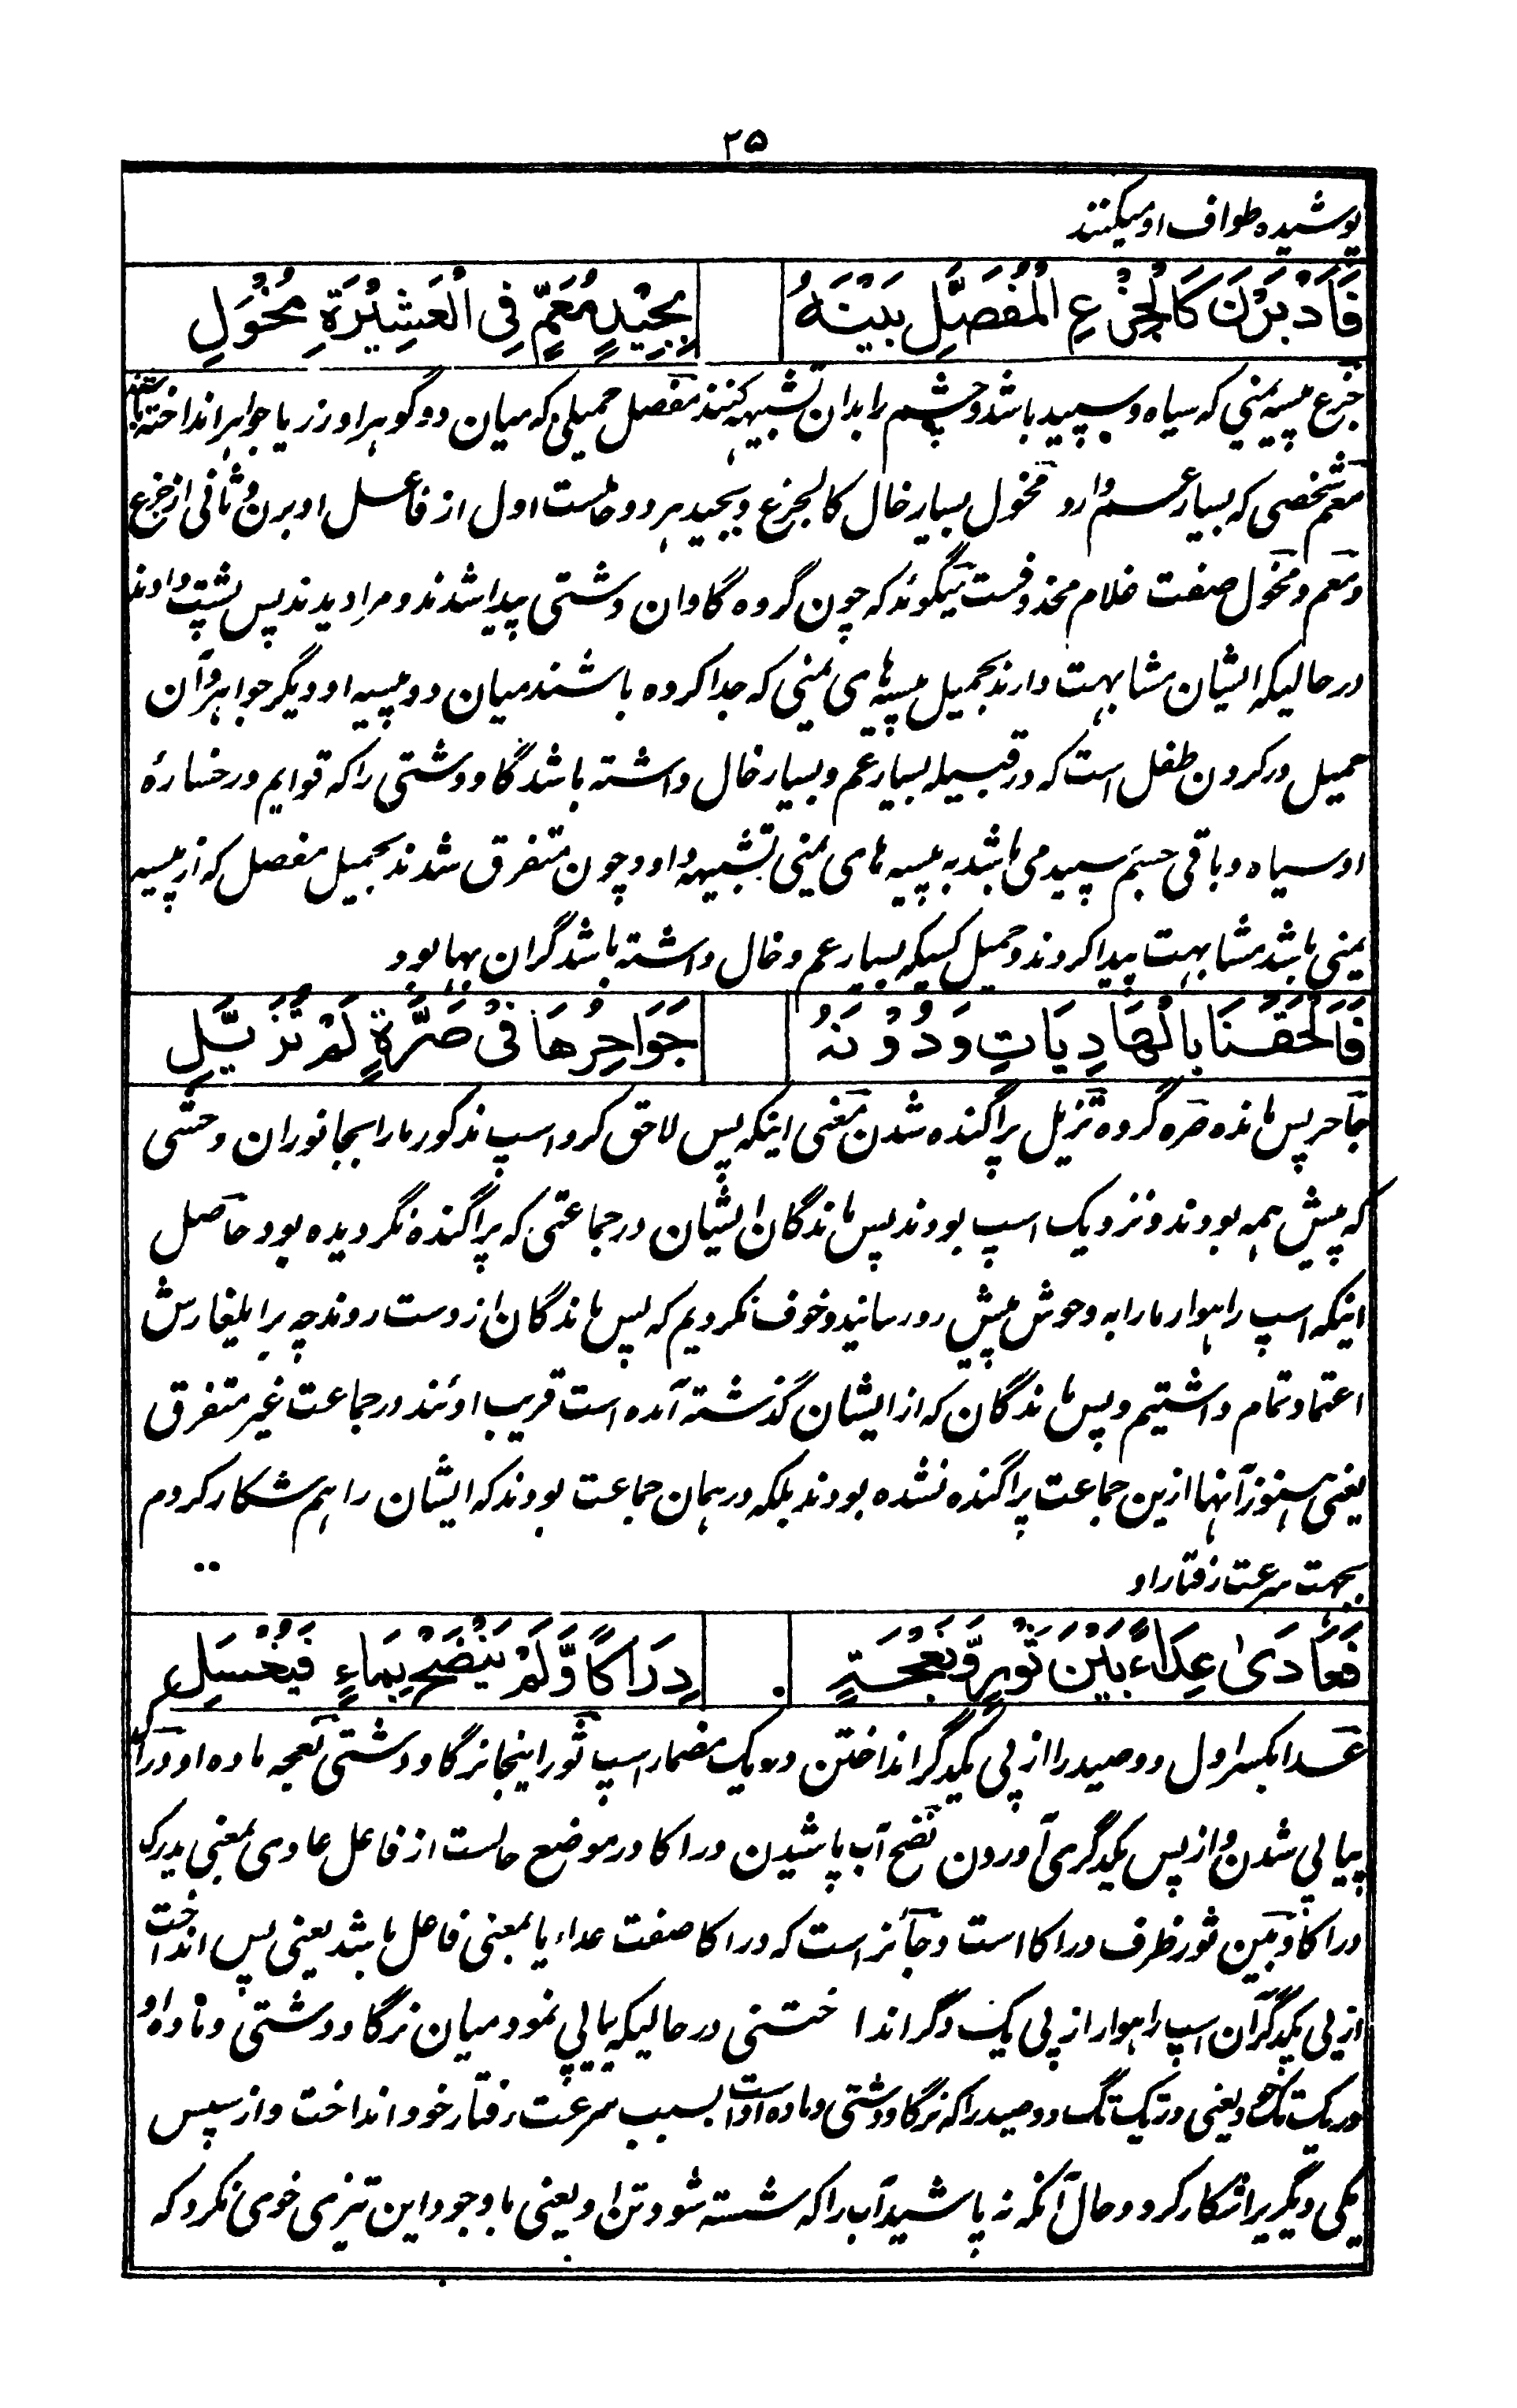 ۲۵
پوشیده طواف او میکنند
فَاَدْبَرْنَ كَالْجِزْعِ الْمُفَصَّلِ بَيْنَهُ بِجِيْدٍ مُعَمٍّ فِى الْعَشِيْرَةِ مُخْوَلِ
جزع پیسه یمنی که سیاه و سپید باشد و چشم را بدان تشبیه کنند مفصل حمیلی که میان دو گوهر او زر یا جواهر انداخته باشند
معم شخصی که بسیار عم دارد مخول بسیار خال کالجزع و بجید هر دو حالست اول از فاعل ادبرن و ثانی از جزع
و معم و مخول صفت غلام محذوفست میگوند که چون گروه گاوان دشتی پیدا شدند و مرا دیدند پس پشت دادند
در حالیکه ایشان مشابهت دارند بحمیل پیسه های یمنی که جدا کرده باشند میان دو پیسه او دیگر جواهر و آن
حمیل در کردن طفل است که در قبیله بسیار عم و بسیار خال داشته باشد گاو دشتی را که قوایم و رخساره
او سیاه و باقی جسم سپید می باشد به پیسه های یمنی تشبیه داد و چون متفرق شدند بحمیل مفصل که از پیسه
یمنی باشد مشابهت پیدا کردند و حمیل کسیکه بسیار عم و خال داشته باشد گران بها بود
فَاَلْحَقَنَا بِالْهَادِيَاتِ وَدُوْنَهُ جَوَاحِرُهَا فِىْ صَرَّةٍ لَمْ تُزَيَّلِ
جاحر پس مانده صره گروه تزیل پراگنده شدن معنی اینکه پس لاحق کرد اسپ مذکور ما را بجانوران وحشی
که پیش همه بودند و نزدیک اسپ بودند پس ماندگان ایشان در جماعتی که پراگنده نگردیده بود حاصل
اینکه اسپ راهوار ما را به وحوش پیش رو رسانید و خوف نکردیم که پس ماندگان از دست روند چه بر ایلغارش
اعتماد تمام داشتیم و پس ماندگان که از ایشان گذشته آمده است قریب اوئند در جماعت غیر متفرق
یعنی هنوز آنها ازین جماعت پراگنده نشده بودند بلکه در همان جماعت بودند که ایشان را هم شکار کردم
بجهت سرعت رفتار او
فَعَادَىٰ عِدَاءً بَيْنَ ثَوْرٍ وَّنَعْجَةٍ دِرَاكًا وَّلَمْ يَنْضَحْ بِمَاءٍ فَيُغْسَلِ
عدا بکسر اول دو صید را از پی یکدگر انداختن در یک مضمار اسپ ثور اینجا نر گاو دشتی نعجه ماده او دراک
پیاپی شدن و از پس یکدگری آوردن نضح آب پاشیدن دراکا در موضع حالست از فاعل عادی بمعنی مدرک
دراکا و بین ثور ظرف دراکا است و جائز است که دراکا صفت عداء یا بمعنی فاعل باشد یعنی پس انداخت
از پی یکدگر آن اسپ راهوار از پی یک دگر اندا ختنی در حالیکه پیاپی نمود میان نر گاو دشتی و ماده او
در یک تگ خود یعنی در یک تگ دو صید را که نر گاو دشتی و ماده او است بسبب سرعت رفتار خود انداخت و از سپس
یکی دیگر یرا شکار کرد و حال آنکه نه پاشید آب را که شسته شود تن او یعنی باوجود این تیزی خوی نکرد که